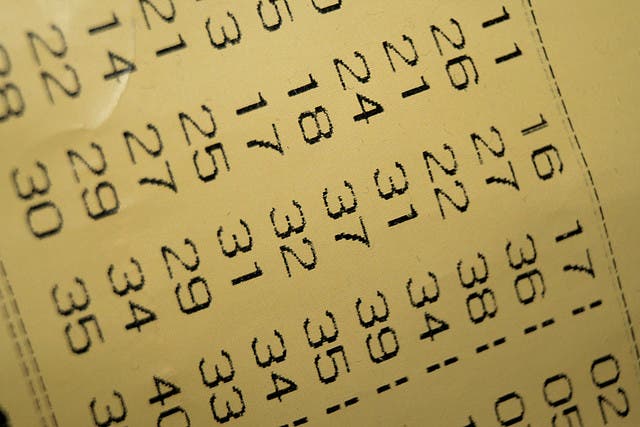 11 16 17 02
26 27 36 05
21 22 38
24 31 34
18 37 39
17 32 35
25 31 34
21 27 29 33
14 29 34 40
22 30 35